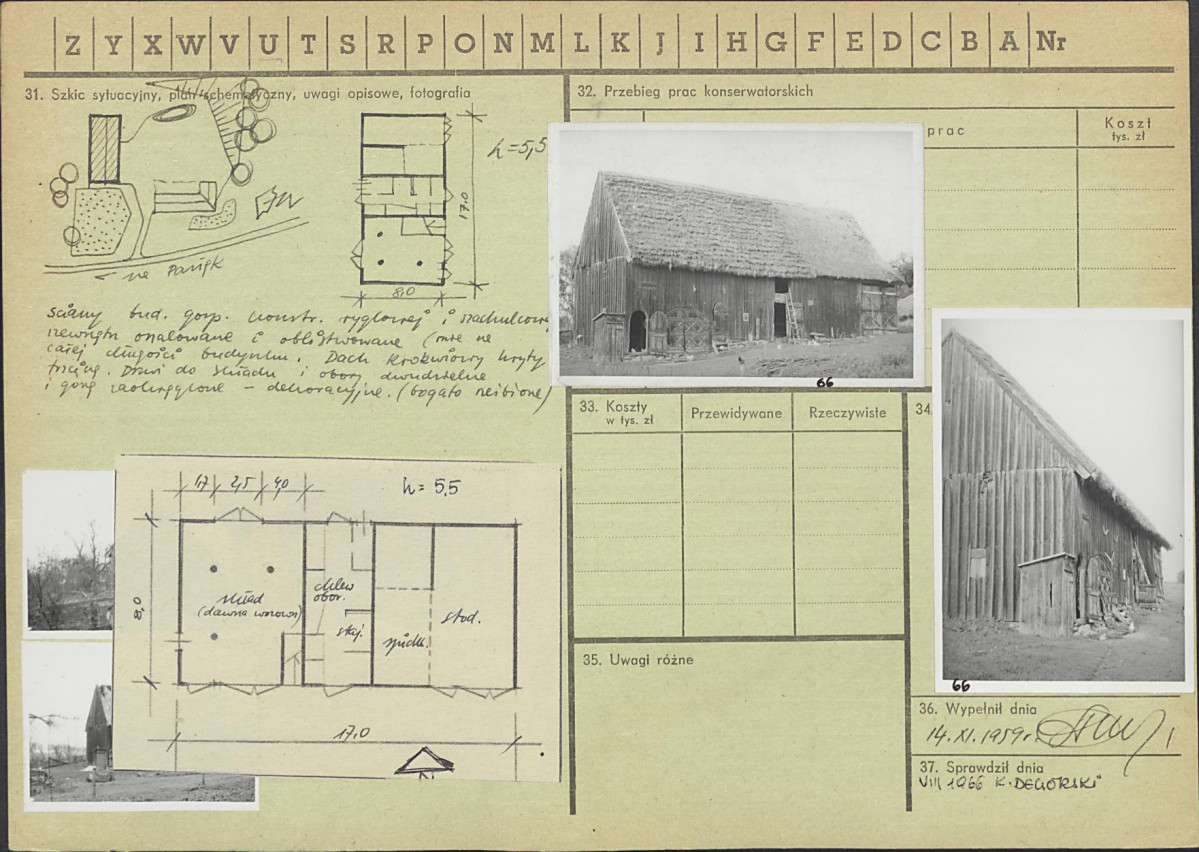 Z Y X W V U T S R P O N M L K J I H G F E D C B A Nr
31. Szkic sytuacyjny, plan schematyczny, uwagi opisowe, fotografia
h=5,5
17,0
8,0
← na Pasięk
ściany bud. gosp. konstr. ryglowej i szachulcowej
zewnątrz oszalowane i oblistwowane
całej długości budynku. Dach krokwiowy kryty
trzciną. Drzwi do składu i obory dwudzielne
i górą zaokrąglone – dekoracyjne. (bogato
1,7 2,5 4,0
h= 5,5
8,0
skład
(dawna wozownia)
chlew
obor.
staj.
stod.
17,0
N
32. Przebieg prac konserwatorskich
prac
Koszt
tys. zł
66
33. Koszty
w tys. zł
Przewidywane
Rzeczywiste
34.
66
35. Uwagi różne
36. Wypełnił dnia
14. XI. 1959 r.
37. Sprawdził dnia
VIII 1966 K. DEGÓRSKI